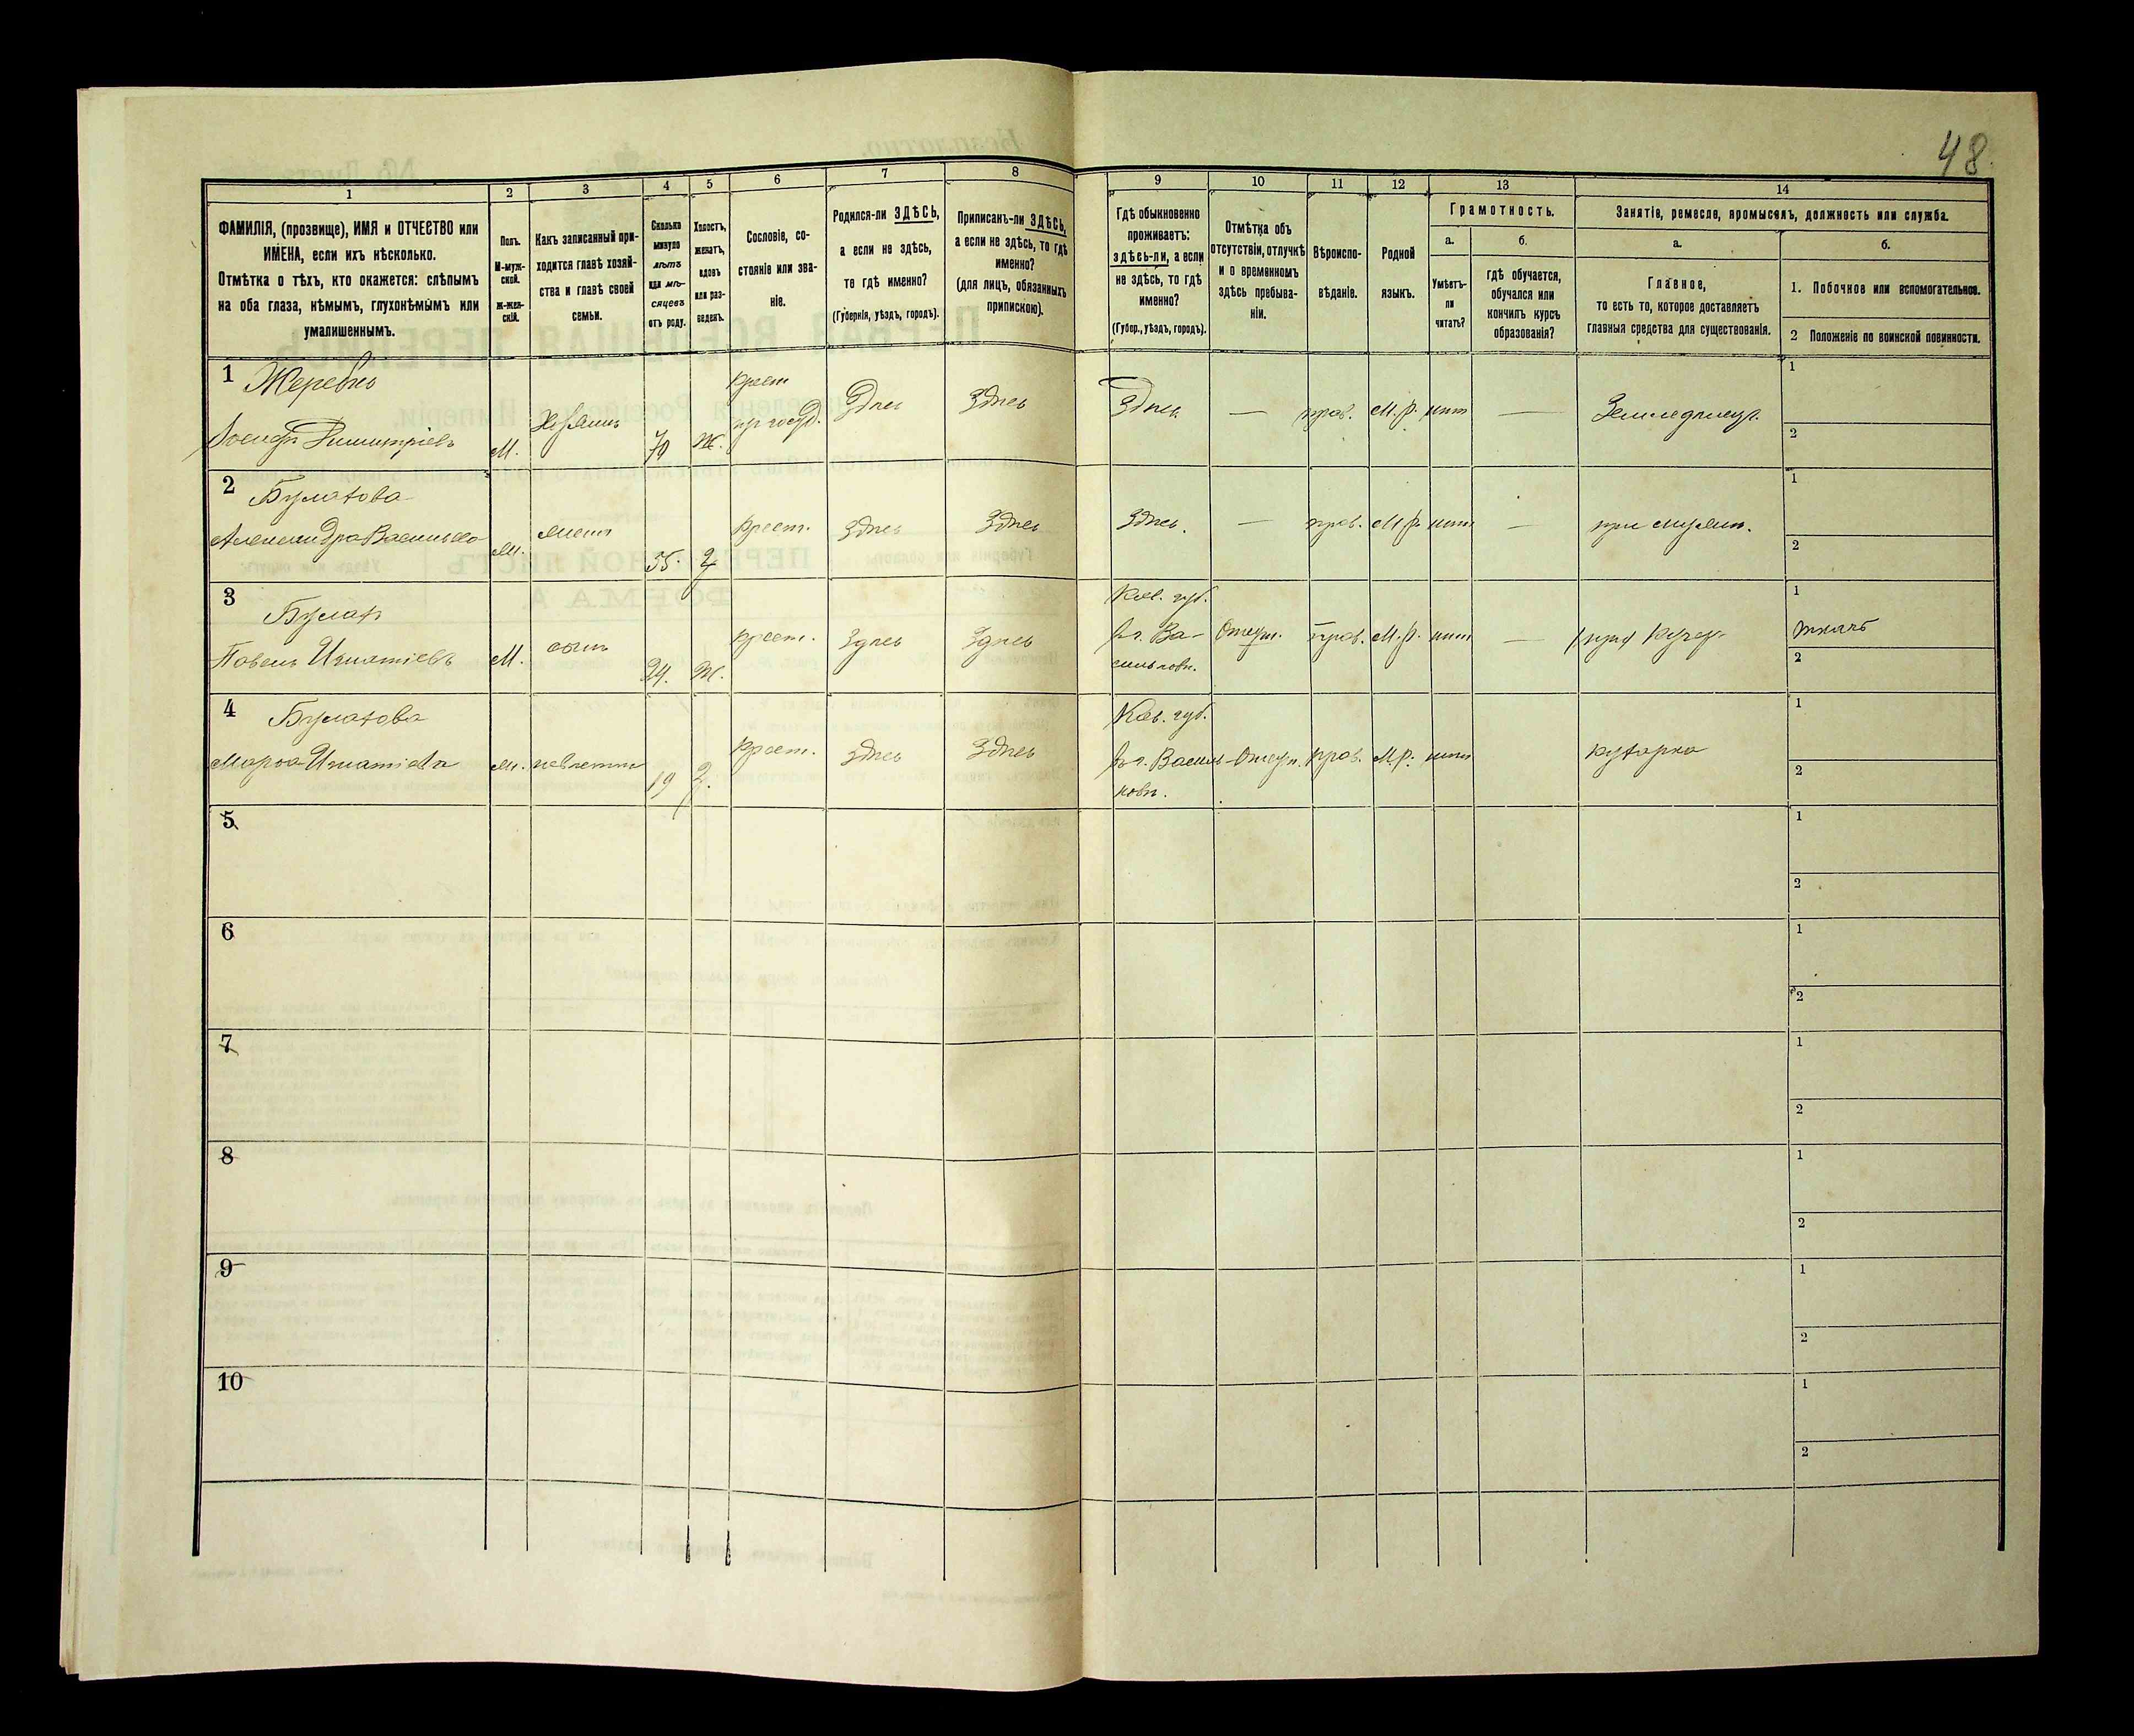 48.
1 2 3 4 5 6 7 8 9 10 11 12 13 14
ФАМИЛІЯ, (прозвище), ИМЯ и ОТЧЕСТВО или
ИМЕНА, если ихъ нѣсколько.
Отмѣтка о тѣхъ, кто окажется: слѣпымъ
на оба глаза, нѣмымъ, глухонѣмымъ или
умалишеннымъ.
Полъ.
М-муж-
ской.
Ж-жен-
скій.
Какъ записанный при-
ходится главѣ хозяй-
ства и главѣ своей
семьи.
Сколько
минуло
лѣтъ
или мѣ-
сяцевъ
отъ роду.
Холостъ,
женатъ,
вдовъ
или раз-
веденъ.
Сословіе, со-
стояніе или зва-
ніе.
Родился-ли ЗДѢСЬ,
а если не здѣсь,
то гдѣ именно?
(Губернія, уѣздъ, городъ).
Приписанъ-ли ЗДѢСЬ,
а если не здѣсь, то гдѣ
именно?
(для лицъ, обязанныхъ
припискою).
Гдѣ обыкновенно
проживаетъ:
здѣсь-ли, а если
не здѣсь, то гдѣ
именно?
(Губер., уѣздъ, городъ).
Отмѣтка объ
отсутствіи, отлучкѣ
и о временномъ
здѣсь пребыва-
ніи.
Вѣроиспо-
вѣданіе.
Родной
языкъ.
Грамотность.
а.
Умѣетъ-
ли
читать?
б.
гдѣ обучается,
обучался или
кончилъ курсъ
образованія?
Занятіе, ремесло, промыселъ, должность или служба.
а.
Главное,
то есть то, которое доставляетъ
главныя средства для существованія.
б.
1. Побочное или вспомогательное.
2 Положеніе по воинской повинности.
1
М. 70 ж. крест Здпсь Здпсь Здпсь — прав. М.р. нит —
1
2
2 Булахова
М. 35. крест. Здпсь Здпсь Здпсь. — прав. М.р. нит —
1
2
3 Булах
Павелъ Игнатіевъ М. сынъ 24. Ж. крест. Здпсь Здпсь Отсут. прав. М.р. нит — ткачъ
Кіев. губ.
в г. Ва-
сильковп.
1
2
4 Булахова
Марѳа М. 19 крест. Здпсь Здпсь прав. М.р. нит кухарка
Кіев. губ.
в г. Василь-
ковп.
1
2
5
1
2
6
1
2
7
1
2
8
1
2
9
1
2
10
1
2